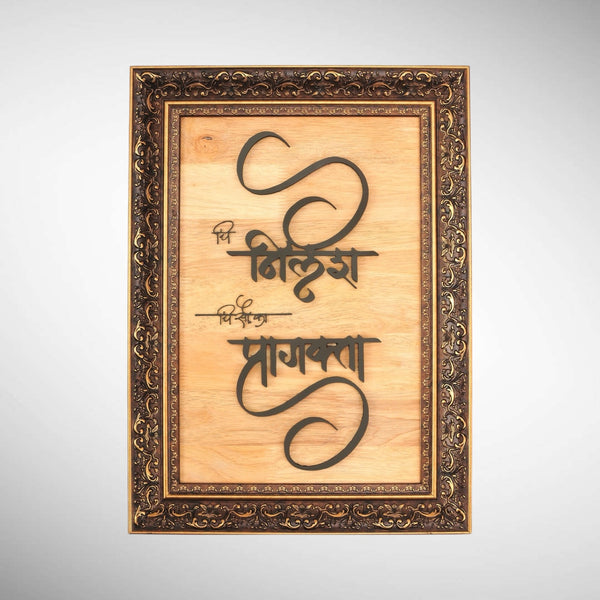 चि
निलेश
चि.सौ.का
प्राजक्ता